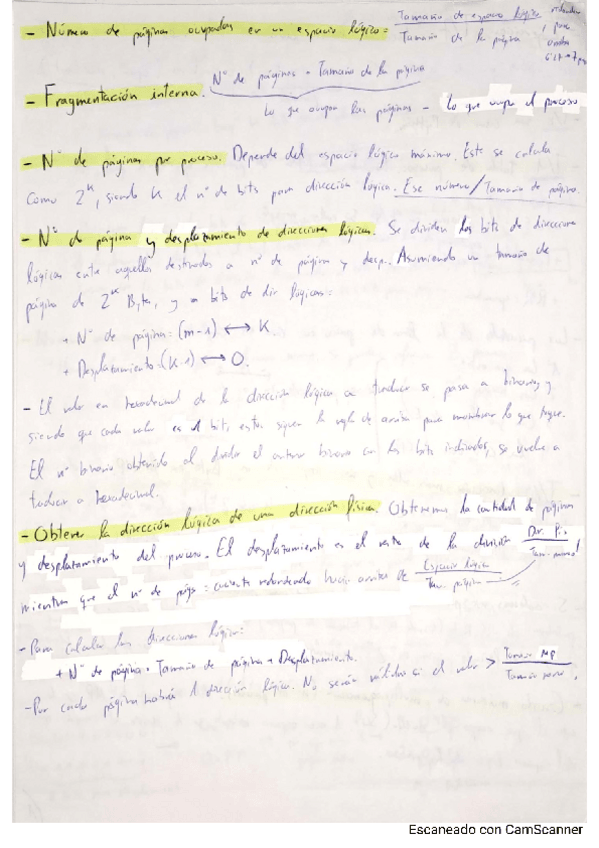 - Número de páginas ocupadas en un espacio lógico = Tamaño de espacio lógico / Tamaño de la página
- Fragmentación interna. Nº de páginas · Tamaño de la página
Lo que ocupan las páginas - Lo que ocupa el proceso
- Nº de páginas por proceso. Depende del espacio lógico máximo. Este se calcula
como 2^K, siendo K el nº de bits para dirección lógica. Ese número / Tamaño de página.
- Nº de página y desplazamiento de direcciones lógicas. Se dividen los bits de direcciones
lógicas entre aquellos destinados a nº de página y desp. Asumiendo un tamaño de
página de 2^K Bytes, y m bits de dir lógicas:
+ Nº de página: (m-1) ⟷ K
+ Desplazamiento: (K-1) ⟷ 0.
- El valor en hexadecimal de la dirección lógica a traducir se pasa a binario y
siendo que cada valor es 1 bit, estos siguen la regla de arriba para
El nº binario obtenido al dividir el anterior binario con los bits indicados, se vuelve a
traducir a hexadecimal.
- Obtener la dirección lógica de una dirección física. Obtenemos la cantidad de páginas
y desplazamiento del proceso. El desplazamiento es el resto de la división
mientras que el nº de págs: cociente redondeado hacia arriba de Espacio lógico / Tam. página
- Para calcular las direcciones lógicas:
+ Nº de página · Tamaño de página + Desplazamiento.
- Por cada página habrá 1 dirección lógica. No serán válidas si el valor > Tamaño MP
Escaneado con CamScanner